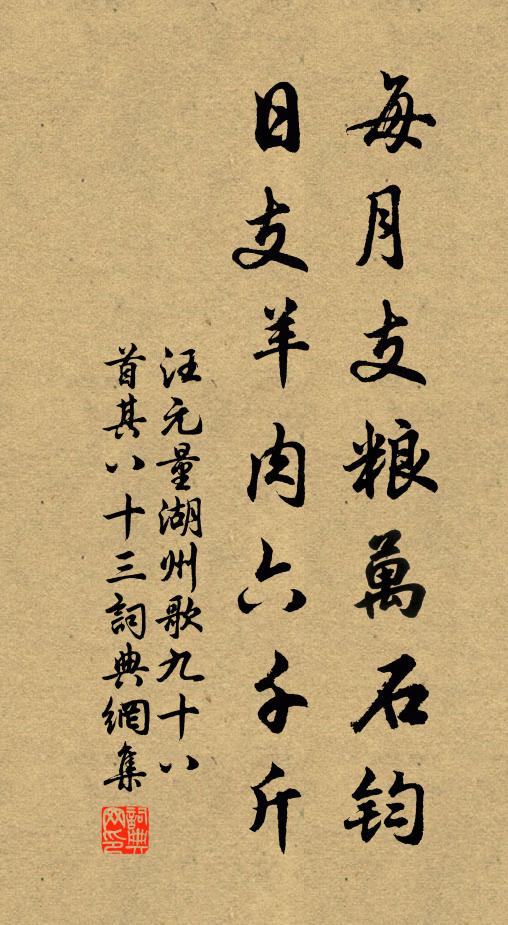 每月支粮萬石鈞
日支羊肉六千斤
汪元量湖州歌九十八
首其八十三詞典網集
詞典
网印